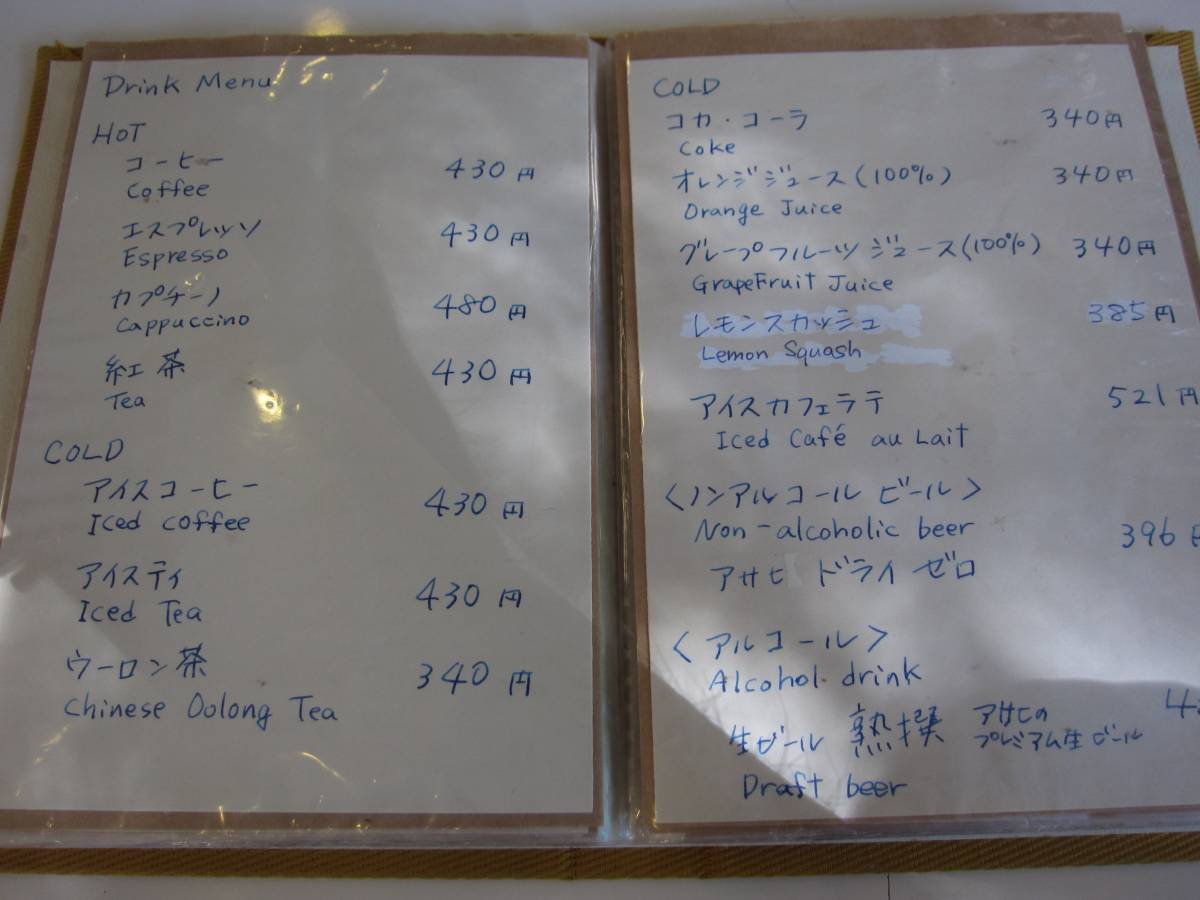 Drink Menu
HOT
コーヒー 430円
Coffee
エスプレッソ 430円
Espresso
カプチーノ 480円
Cappuccino
紅茶 430円
Tea
COLD
アイスコーヒー 430円
Iced coffee
アイスティ 430円
Iced Tea
ウーロン茶 340円
Chinese Oolong Tea
COLD
コカ・コーラ 340円
Coke
オレンジジュース(100%) 340円
Orange Juice
グレープフルーツジュース(100%) 340円
GrapeFruit Juice
レモンスカッシュ 385円
Lemon Squash
アイスカフェラテ 521円
Iced Café au Lait
<ノンアルコールビール>
Non-alcoholic beer 396円
アサヒ ドライゼロ
<アルコール>
Alcohol drink
生ビール 熟撰 アサヒの
プレミアム生ビール
Draft beer